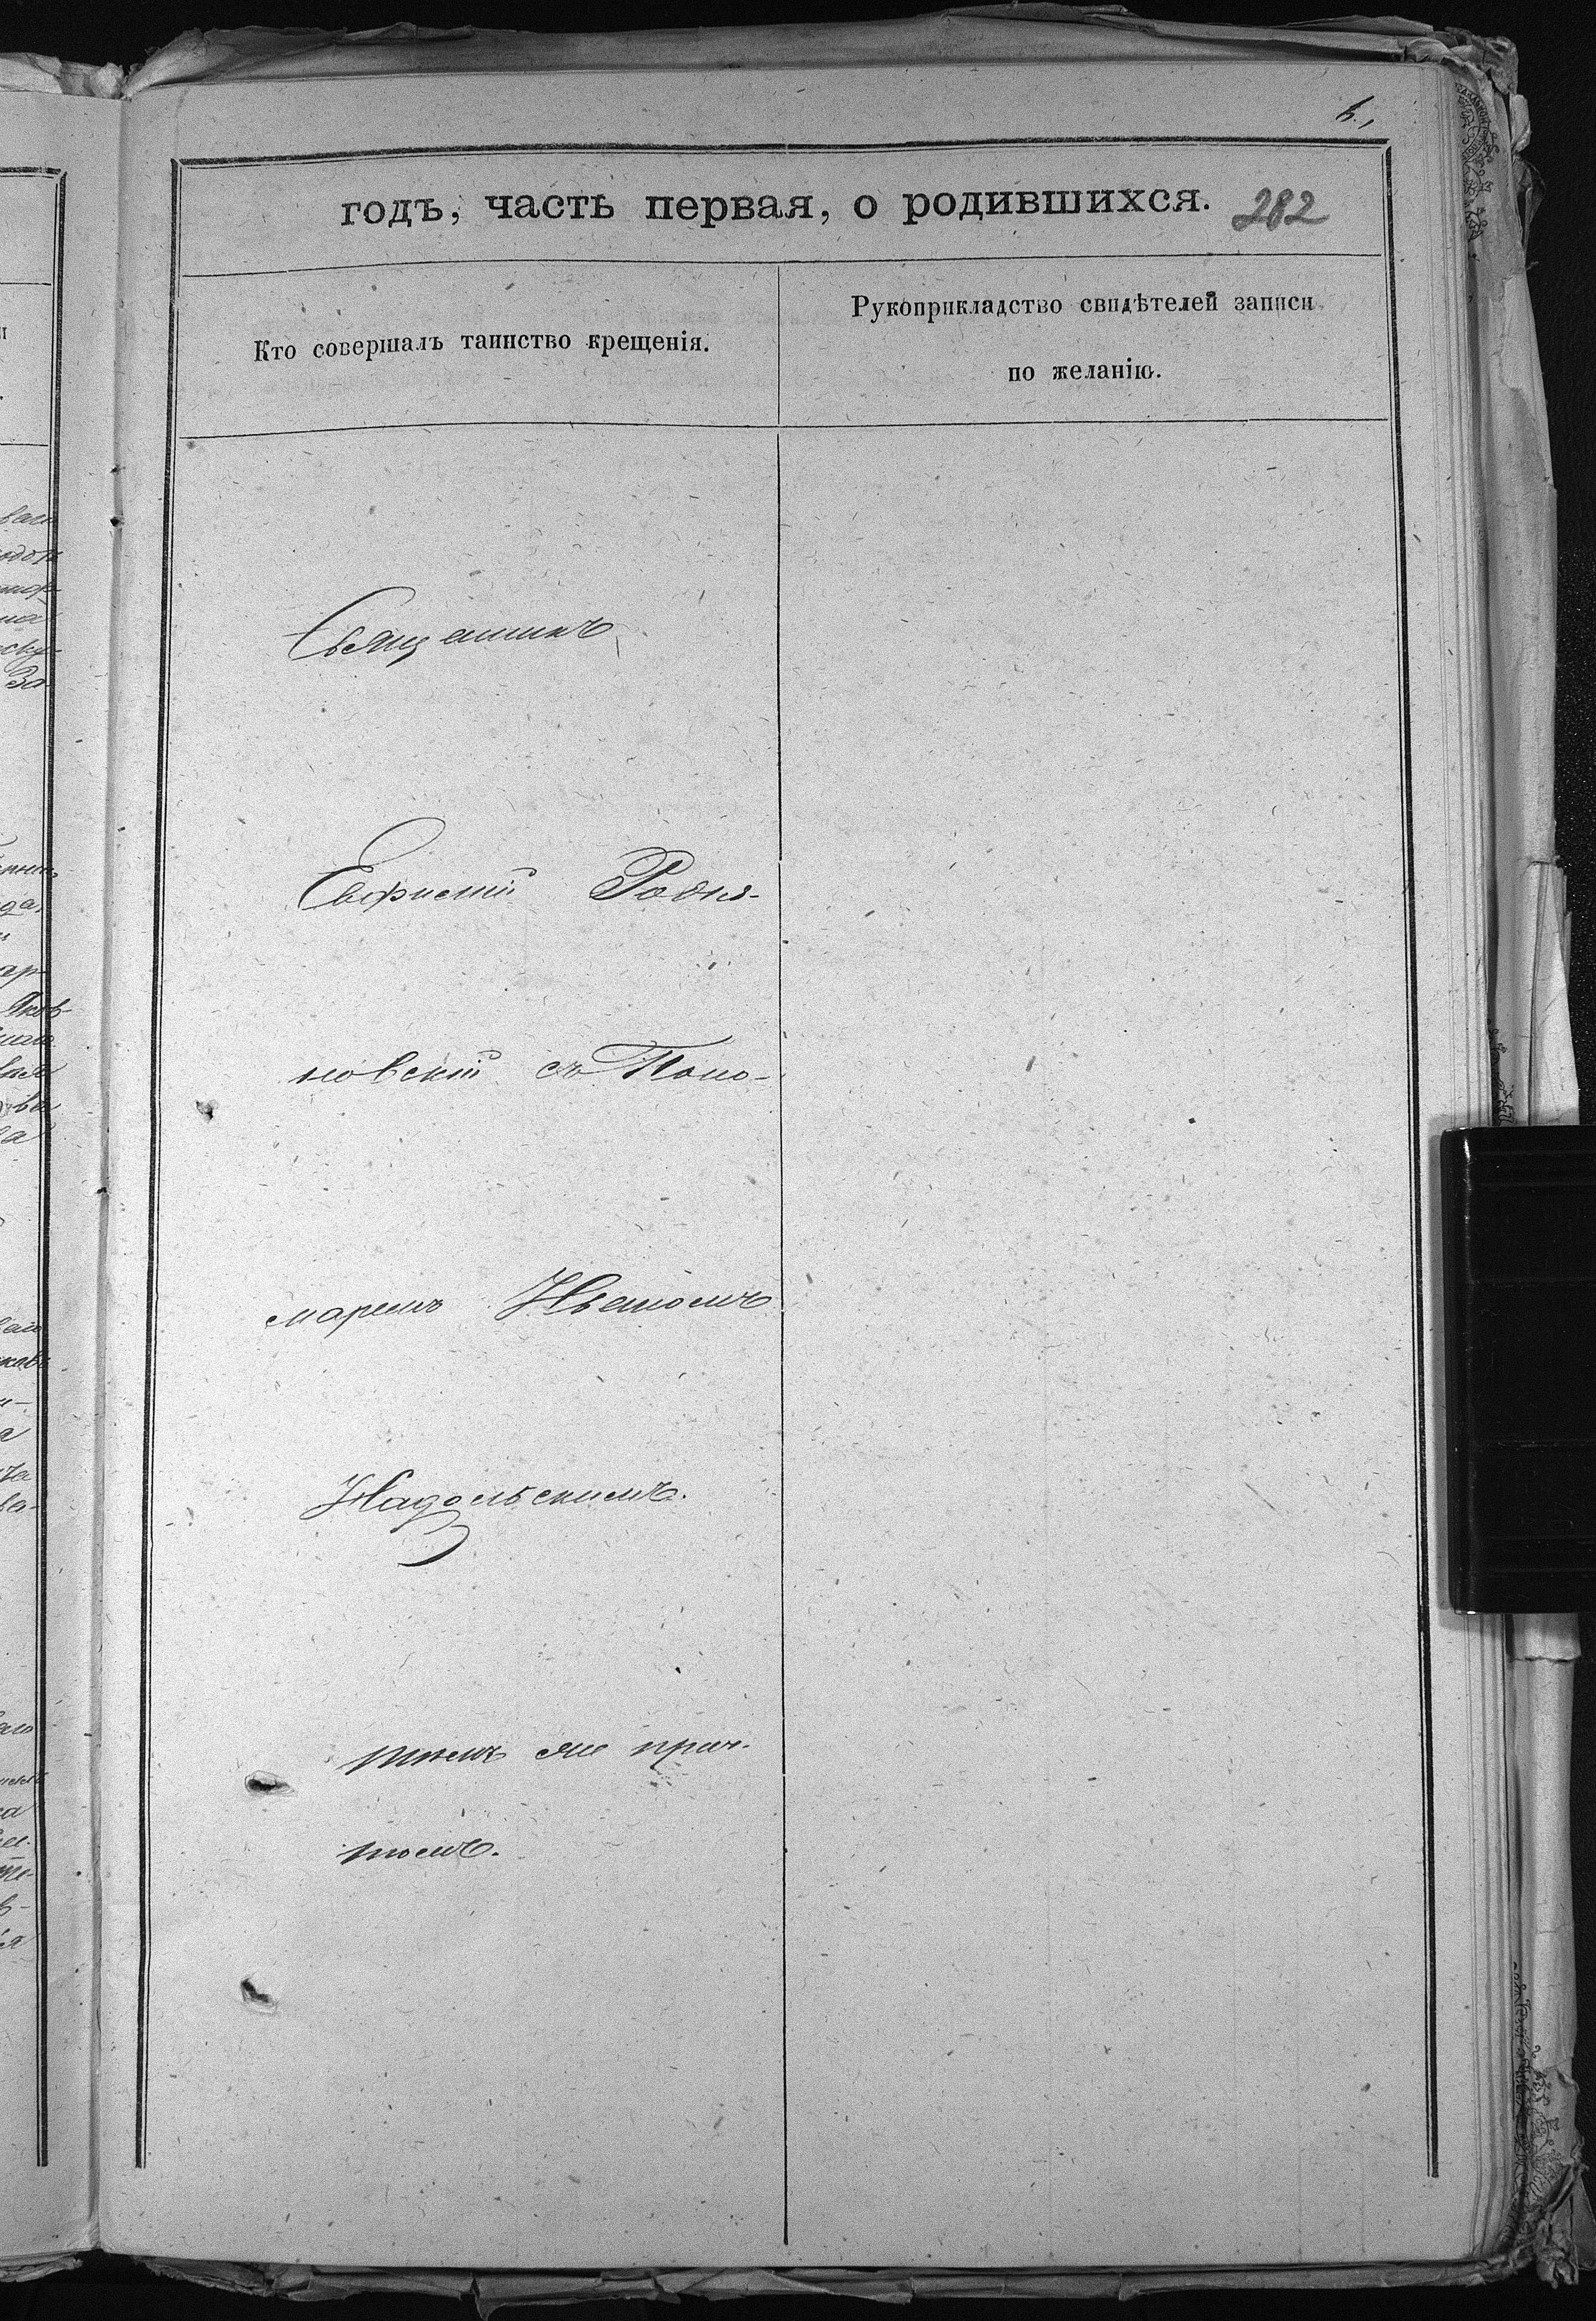 годъ, часть первая, о родившихся. 282
Кто совершалъ таинство крещенія.
Рукоприкладство свидѣтелей записи
по желанію.
Священникъ
Радня-
новскій съ Поно-
маремъ Иваномъ
Надольскимъ.
тѣмъ же прич-
томъ.